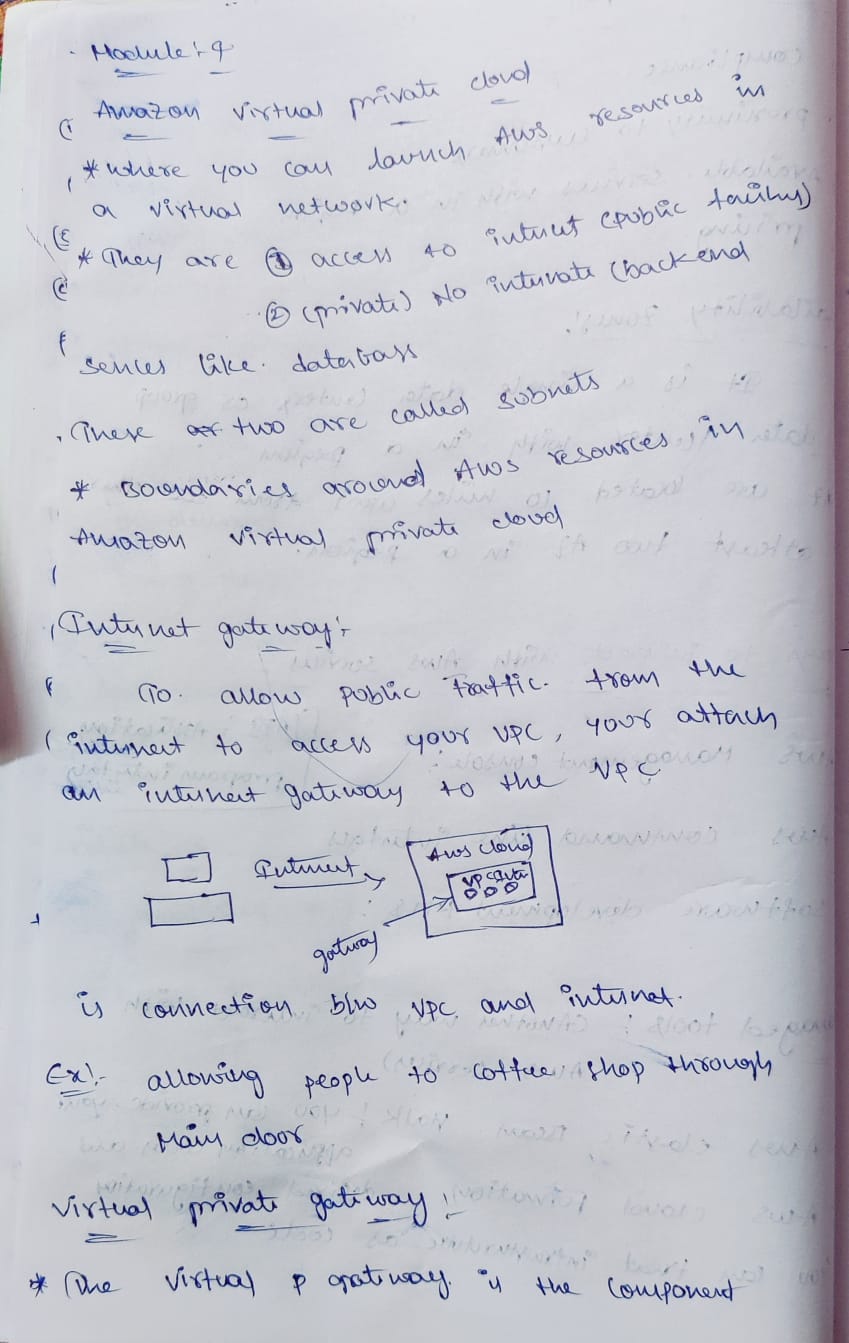 Module:- 4
Amazon virtual private cloud
* where you can launch AWS resources in
a virtual network.
* They are ① access to internet (public facing)
② (private) No internate (backend
services like. databass
These two are called subnets
* Boundaries around AWS resources in
Amazon virtual private cloud
Internet gateway:-
To allow public traffic. from the
internet to access your VPC, your attach
an internet gateway to the VPC
Internet
AWS cloud
VPC
gatway
is connection b/w VPC and internet.
Ex:- allowing people to coffee shop through
Main door
Virtual private gateway:-
* The virtual p gateway is the component